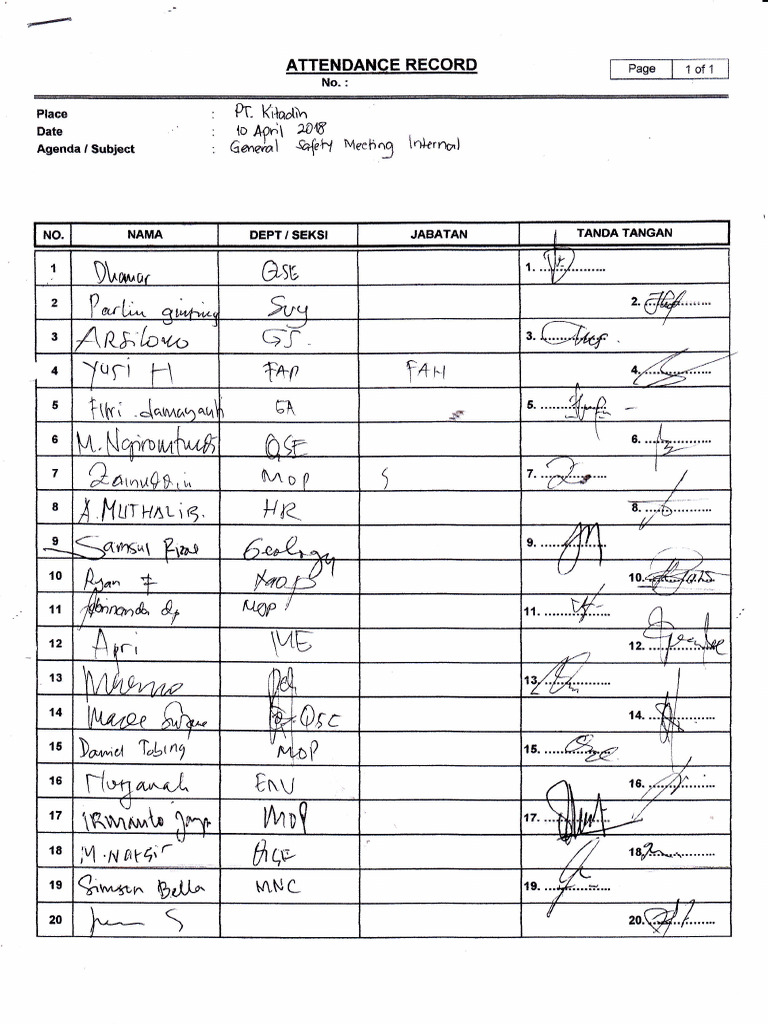 ATTENDANCE RECORD
No. :
Page 1 of 1
Place : PT. Kitadin
Date : 10 April 2018
Agenda / Subject : General Safety Meeting Internal
NO. NAMA DEPT / SEKSI JABATAN TANDA TANGAN
1 Dhamar QSE 1.
2 Parlin ginting Svy 2.
3 ARSiLOWO GS. 3.
4 Yusi H FAP FAH 4.
5 Fitri damayanti GA 5.
6 M. QSE 6.
7 Zainuddin MOP S 7.
8 A. MUTHALIB. HR 8.
9 Samsul Rizal Geology 9.
10 Ryan F MOP 10.
11 dp MOP 11.
12 Apri ME 12.
13 13.
14 QSE 14.
15 Daniel Tobing MOP 15.
16 Nurjanah ENV 16.
17 IRWANTO Jaya MOP 17.
18 M. NATSIR QSE 18.
19 Simson Bella MNC 19.
20 S 20.